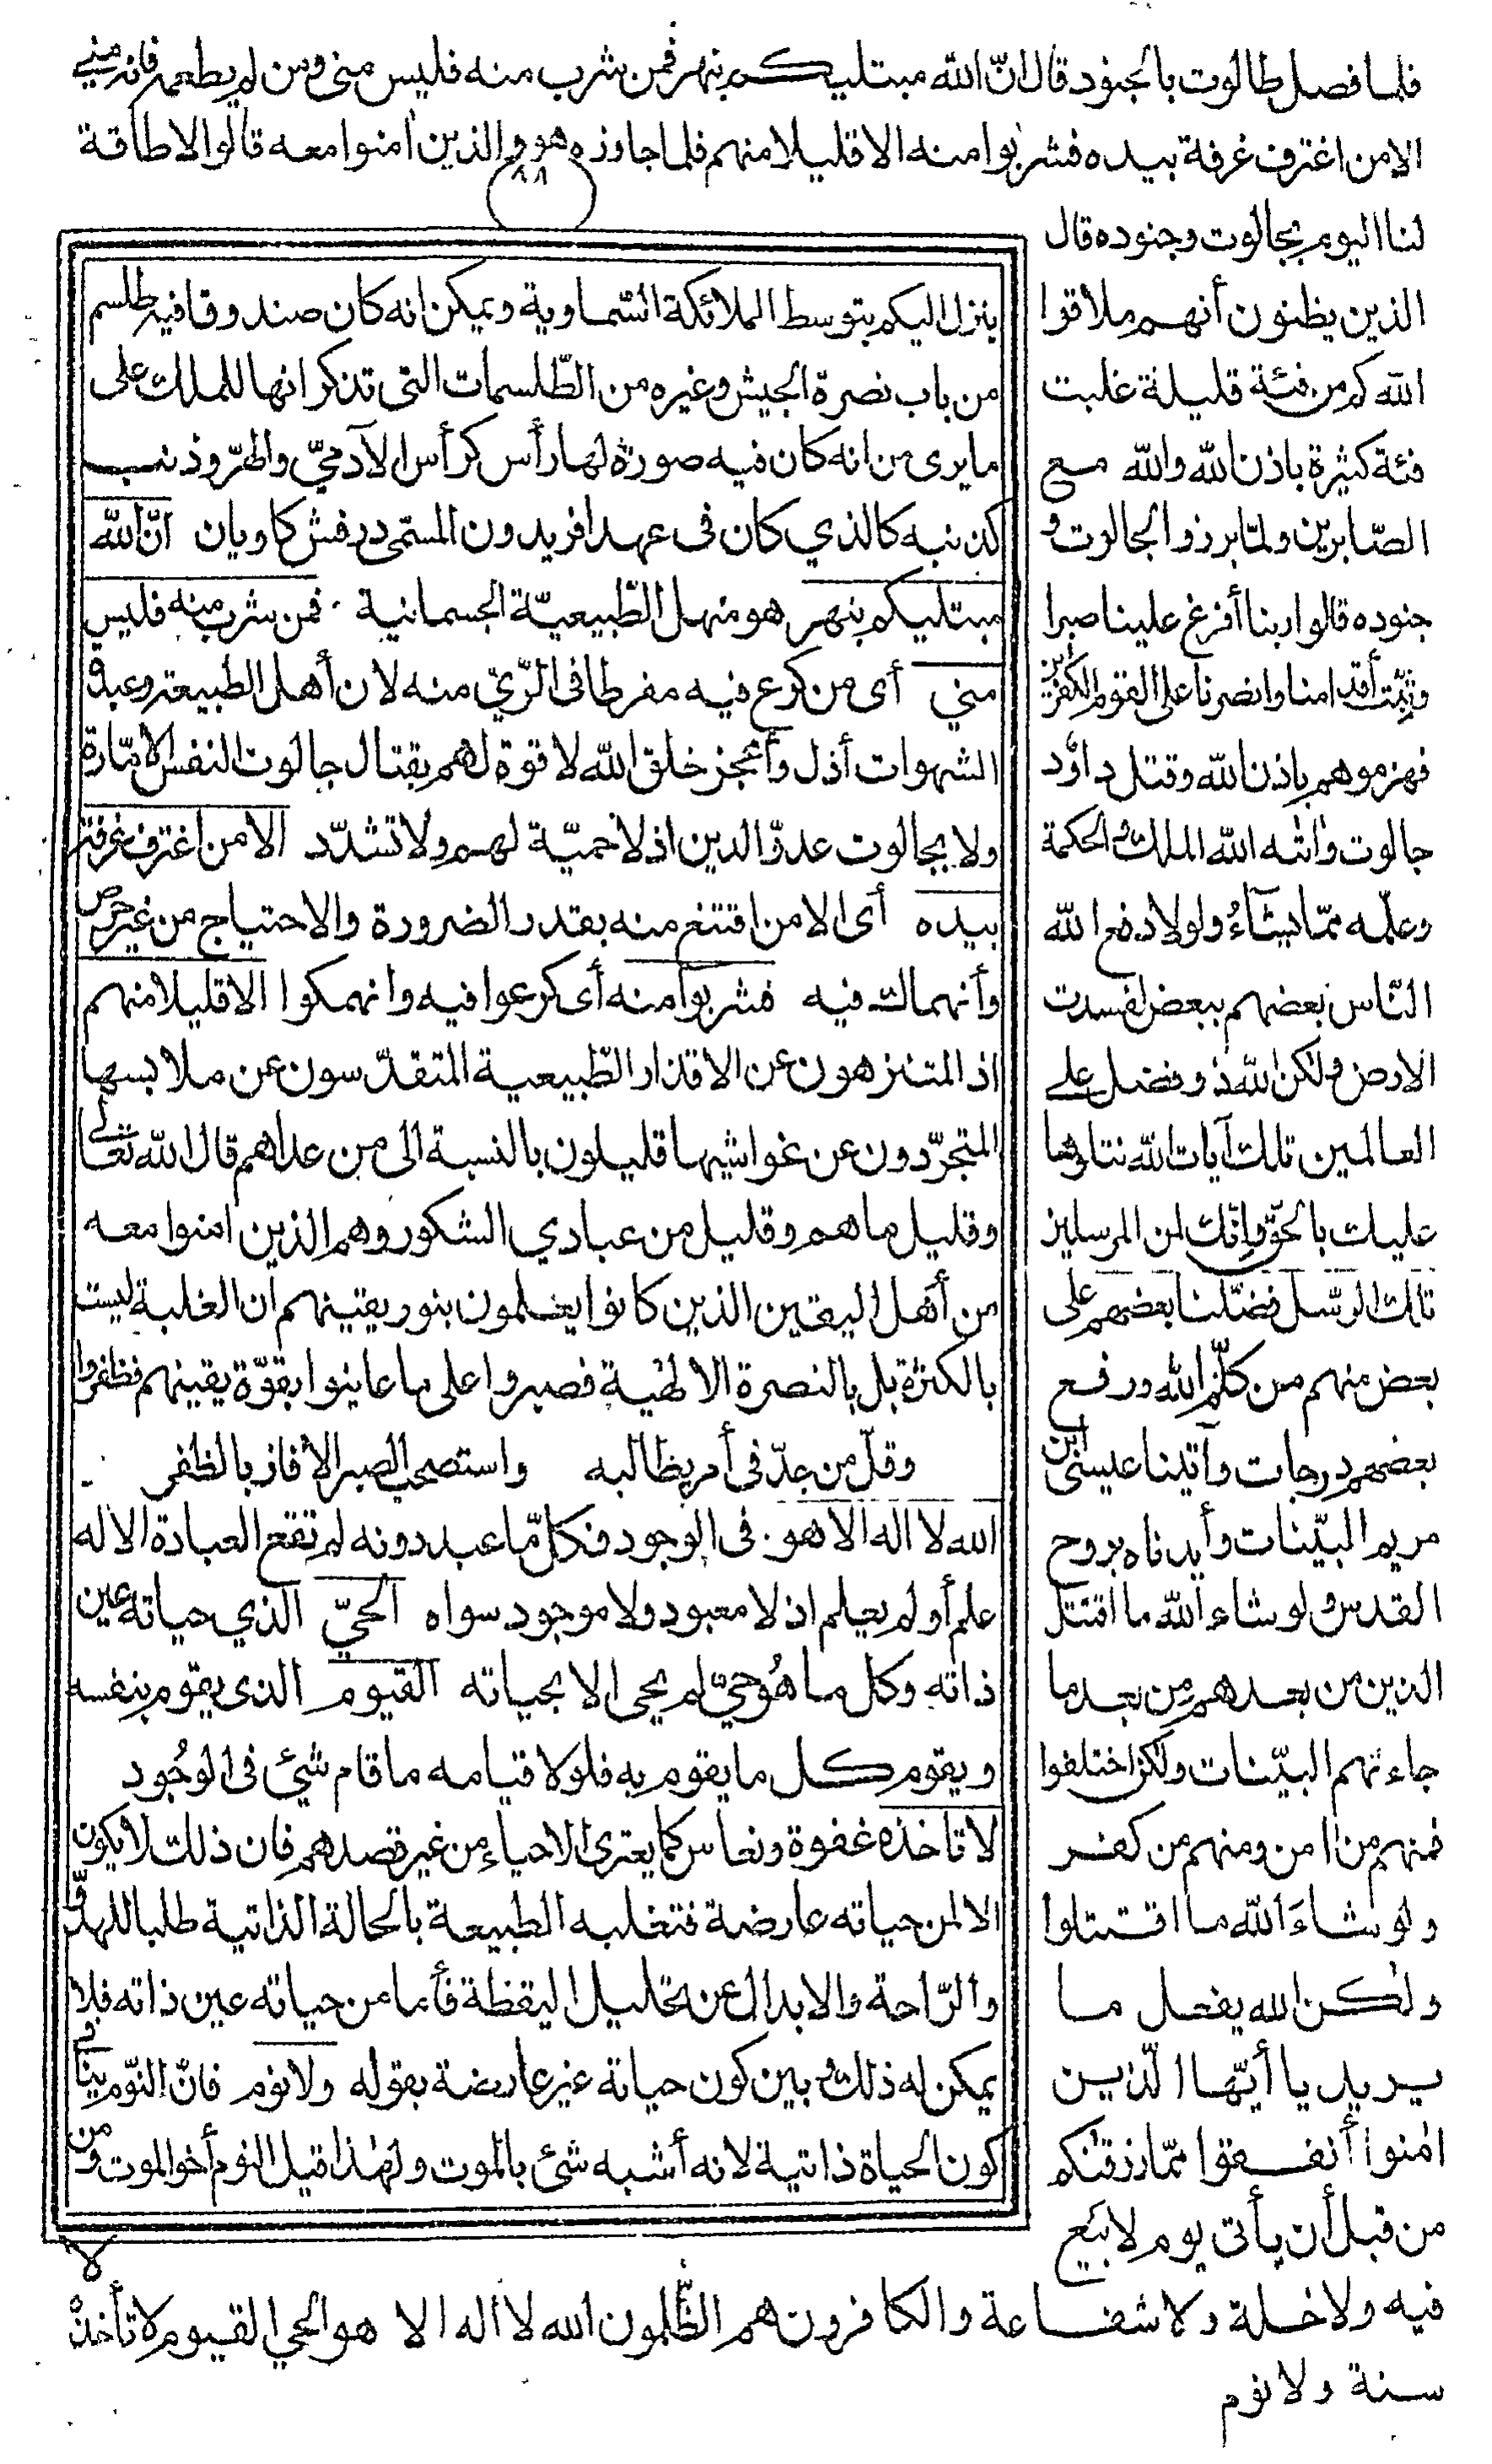 فلما فصل طالوت بالجنود قال انّ الله مبتليكم بنهر فمن شرب منه فليس مني ومن لم يطعمه فانه مني
الا من اغترف غرفة بيده فشربوا منه الا قليلا منهم فلما جاوزه هو والذين امنوا معه قالوا لا طاقة
٨٨
لنا اليوم بجالوت وجنوده قال
الذين يظنون أنهم ملاقوا
الله كم من فئة قليلة غلبت
فئة كثيرة باذن الله والله مع
الصّابرين ولمّا برزوا لجالوت و
جنوده قالوا ربنا أفرغ علينا صبرا
وثبّت أقدامنا وانصرنا على القوم الكفرين
فهزموهم باذن الله وقتل داوٗد
جالوت واٰتٰه الله الملك والحكمة
وعلّمه ممّا يشآءُ ولولا دفع الله
النّاس بعضهم ببعض لفسدت
الارض ولكن الله ذو فضل على
العالمين تلك آيات الله نتلوها
عليك بالحقّ وانّك لمن المرسلين
تلك الرسل فضّلنا بعضهم على
بعض منهم من كلّم الله ورفع
بعضهم درجات وآتينا عيسى ابن
مريم البيّنات وأيدناه بروح
القدس ولو شاء الله ما اقتتل
الذين من بعدهم من بعد ما
جاءتهم البيّنات ولكن اختلفوا
فمنهم من امن ومنهم من كفر
ولو شاءَ الله ما اقتتلوا
ولٰكن الله يفعل ما
يريد يا أيّها الّذين
اٰمنوا أنفقوا ممّا رزقنٰكم
من قبل أن يأتى يوم لا بيع
ينزل اليكم بتوسط الملائكة السّماوية ويمكن انه كان صندوقا فيه طلسم
من باب نصرة الجيش وغيره من الطّلسمات التى تذكر انها للملك على
ما يرى من انه كان فيه صورة لها رأس كرأس الآدميّ والهرّ وذنب
كذنبه كالذي كان فى عهد افريدون المسمّى درفش كاويان انّ الله
مبتليكم بنهر هو منهل الطّبيعيّة الجسمانية فمن شرب منه فليس
مني أى من كرع فيه مفرطا فى الرّيّ منه لان أهل الطبيعة وعبدة
الشهوات أذل وأعجز خلق الله لا قوة لهم بقتال جالوت النفس الامّارة
ولا بجالوت عدوّ الدين اذ لا حميّة لهم ولا تشدّد الا من اغترف غرفة
بيده أى الا من اقتنع منه بقدر الضرورة والاحتياج من غير حرص
وأنهماك فيه فشربوا منه أى كرعوا فيه وانهمكوا الا قليلا منهم
اذ المتنزهون عن الاقذار الطّبيعية المتقدّسون عن ملابسها
المتجرّدون عن غواشيها قليلون بالنسبة الى من عداهم قال الله تعالى
وقليل ما هم وقليل من عبادي الشكور وهم الذين امنوا معه
من أهل اليقين الذين كانوا يعلمون بنور يقينهم ان الغلبة ليست
بالكثرة بل بالنصرة الالهية فصبروا على ما عاينوا بقوّة يقينهم فظفروا
وقلّ من جدّ فى أمر يطالبه واستصحب الصبر الا فاز بالظفر
الله لا اله الا هو فى الوجود فكل مّا عبد دونه لم تقع العبادة الا له
علم أو لم يعلم اذ لا معبود ولا موجود سواه الحيّ الذي حياته عين
ذاته وكل ما هُو حيّ لم يحى الا بحياته القيوم الذى يقوم بنفسه
ويقوم كل ما يقوم به فلولا قيامه ما قام شئ فى الوجُود
لا تاخذه غفوة ونعاس كما يعترى الاحياء من غير قصدهم فان ذلك لا يكون
الا لمن حياته عارضة فتغلبه الطبيعة بالحالة الذاتية طلبا للهدوّ
والرّاحة والابدال عن تحليل اليقظة فأما من حياته عين ذاته فلا
يمكن له ذلك بين كون حياته غير عارضة بقوله ولا نوم فانّ النّوم ينافى
كون الحياة ذاتية لانه أشبه شئ بالموت ولهٰذا قيل النوم أخو الموت ومن
لا
فيه ولا خلة ولا شفاعة والكافرون هم الظّٰلمون الله لا اله الا هو الحي القيوم لا تأخذه
سنة ولا نوم